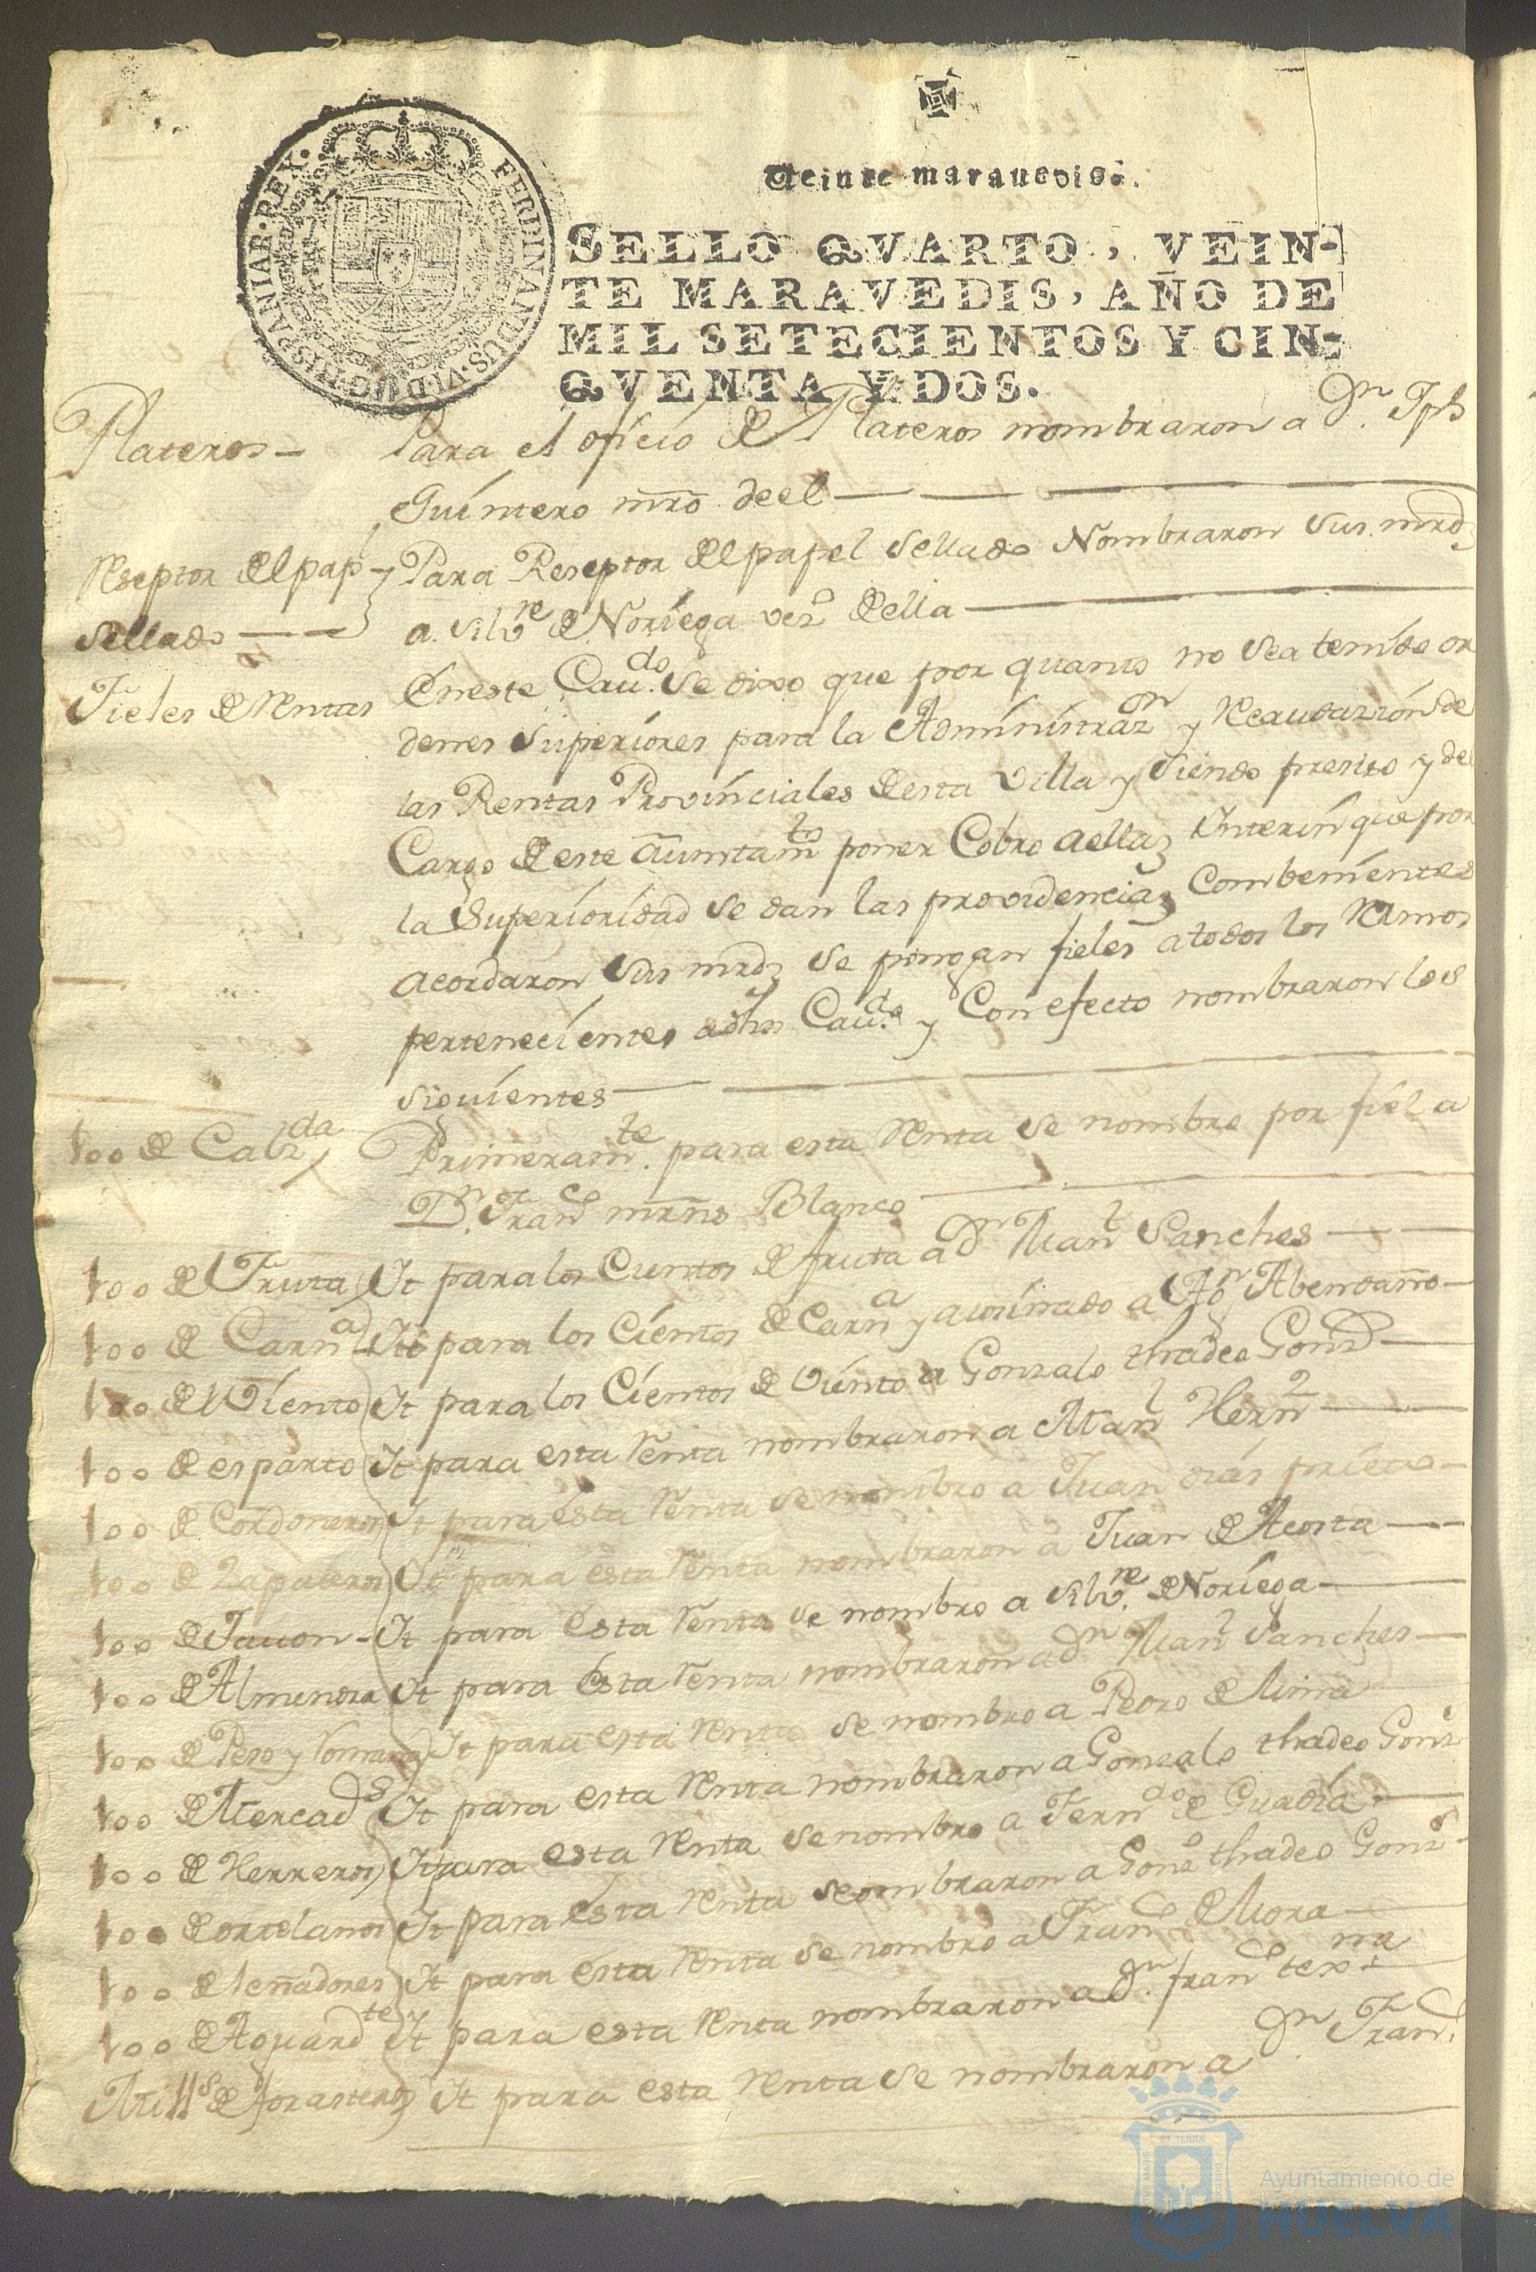 Veinte maravedis.
SELLO QVARTO, VEIN-
TE MARAVEDIS, AÑO DE
MIL SETECIENTOS Y CIN-
QVENTA Y DOS.
FERDINANDUS.VI.D.G. HISPANIAR.REX.
Plateros - Para el oficio de Plateros nombraron a Dn. Jph
Quintero mro. deel
Reseptor del pap Para Reseptor del papel sellado Nombraron sus mrdz
sellado a Silvre de Noriega vezo della
Fieles de Rentas En este Cavdo. se dixo que por quanto no sea tenido or
denes superiores para la Administrazn y Recaudazion de
las Rentas Provinciales desta Villa y siendo presiso y del
Cargo de este Aiuntamto poner Cobro aellaz Interin que por
la Superioridad se dan las providenciaz Combenientes
acordaron sus mrdz se pongan fieles a todos los Ramos
pertenecientes adhos Cavdo y Con efecto nombraron los
siguientes
100 de Calzda Primeramte. para esta Renta se nombro por fiel a
Dn. Franco mrns Blanco
100 de Fruta It para los Cientos de fruta a Dn Manl Sanches
100 de Carna It para los Cientos de Carna y a Abendaño
100 del Viento It para los Cientos de Viento a Gonzalo thadeo Gonz
100 de esparto It para esta Renta nombraron a Manl Hernz
100 de Cordoneros It para esta Renta se nombro a Juan dias prieto
100 de Zapateros It para esta Renta nombraron a Juan de Acosta
100 de Javon - It para esta Renta se nombro a Silvre. de Noriega
100 de Almendra It para esta Renta nombraron a Dn Manl Sanches
100 de Peso y Romana It para esta Renta se nombro a Pedro de Mina
100 de Mercads It para esta Renta nombraron a Gonzalo thadeo Gonz
100 de Herreros It para esta Renta se nombro a Ferndo de Guadia
100 de ortelanos It para esta Renta senombraron a Gono thadeo Gonz
100 de leñadores It para esta Renta se nombro a Franco de Mora
100 de Aguardte It para esta Renta nombraron a Dn. franco
de forasteros It para esta Renta se nombraron a Dn Franco.
Ayuntamiento de
HUELVA